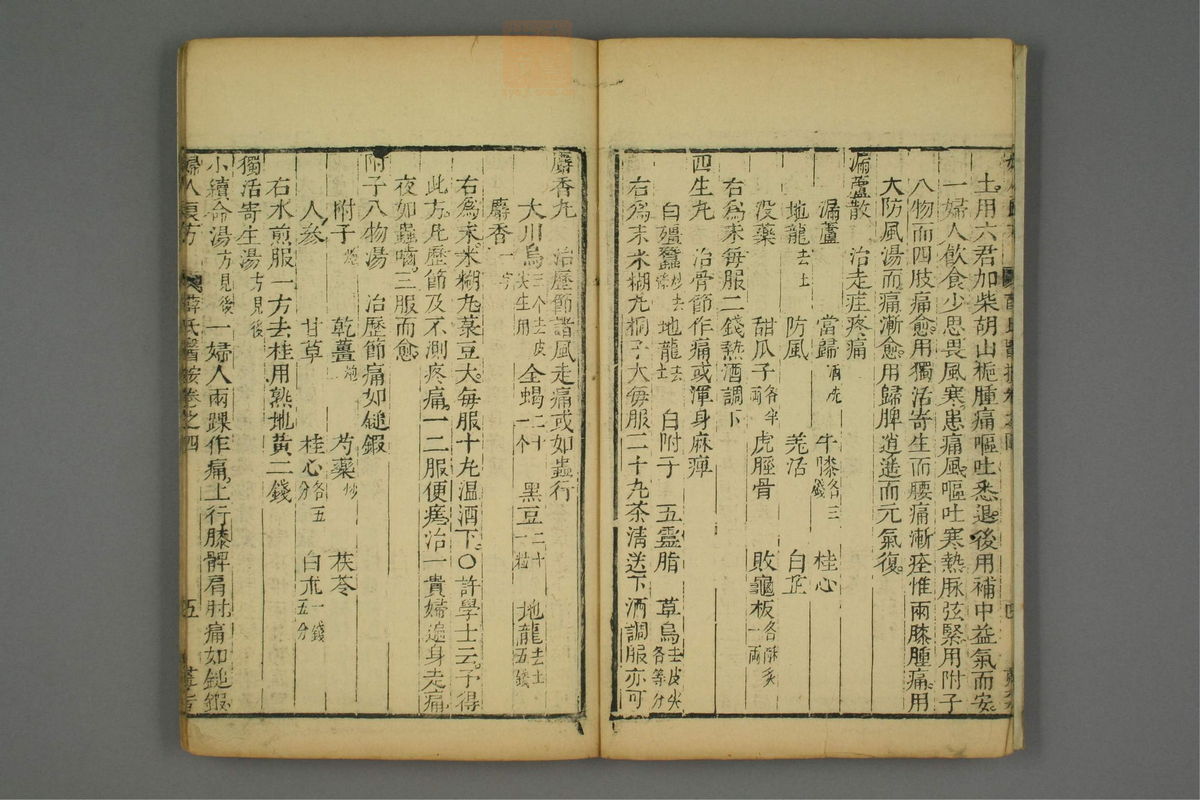 土用六君加柴胡山梔腫痛嘔吐悉退後用補中益氣而安
一婦人飲食少思畏風寒患痛風嘔吐寒熱脉弦緊用附子
八物而四肢痛愈用獨活寄生而腰痛漸痊惟兩膝腫痛用
大防風湯而痛漸愈用歸脾逍遥而元氣復
漏蘆散 治走疰疼痛
漏蘆 當歸酒洗 牛膝各三錢 桂心
地龍去土 防風 羌活 白芷
没藥 甜瓜子各半兩 虎脛骨 敗龜板各酥炙一兩
右爲末每服二錢熱酒調下
四生丸 治骨節作痛或渾身麻痺
白殭蠶炒去絲 地龍去土 白附子 五靈脂 草烏去皮尖各等分
右爲末米糊丸桐子大每服二十丸茶清送下酒調服亦可
麝香丸 治歷節諸風走痛或如蟲行
大川烏三个去皮尖生用 全蝎二十一个 黑豆二十一粒 地龍去土五錢
麝香一字
右爲末米糊丸菉豆大每服十丸温酒下○許學士云予得
此方凡歷節及不測疼痛一二服便瘥治一貴婦遍身走痛
夜如蟲嚙三服而愈
附子八物湯 治歷節痛如鎚鍜
附子炮 乾薑炮 芍藥炒 茯苓
人參 甘草 桂心各五分 白朮一錢五分
右水煎服一方去桂用熟地黃二錢
獨活寄生湯方見後
小續命湯方見後 一婦人兩踝作痛上行膝髀肩肘痛如鎚鍜
婦人良方 薛氏醫按卷之四 五